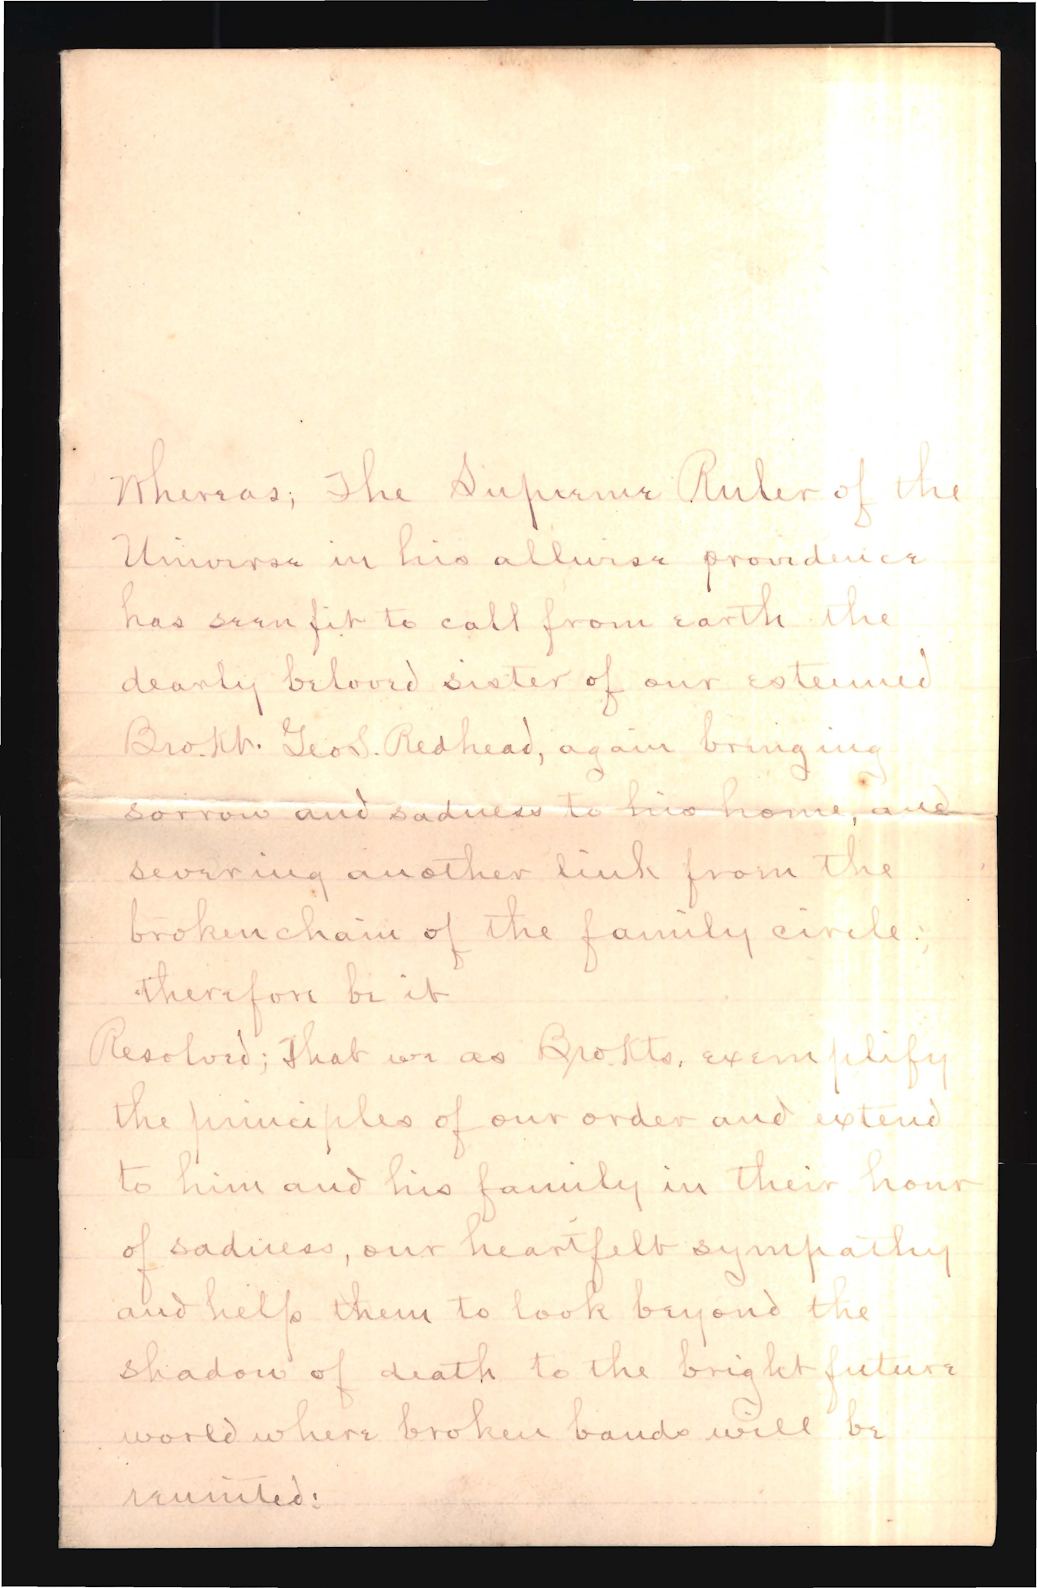 Whereas; The Supreme Ruler of the
Universe in his allwise providence
has seen fit to call from earth the
dearly beloved sister of our esteemed
Bro. Kt. Geo S. Redhead, again bringing
sorrow and sadness to his home, and
severing another link from the
broken chain of the family circle:
therefore be it
Resolved; That we as Bro. Kts. exemplify
the principles of our order and extend
to him and his family in their hour
of sadness, our heartfelt sympathy
and help them to look beyond the
shadow of death to the bright future
world where broken bands will be
reunited: